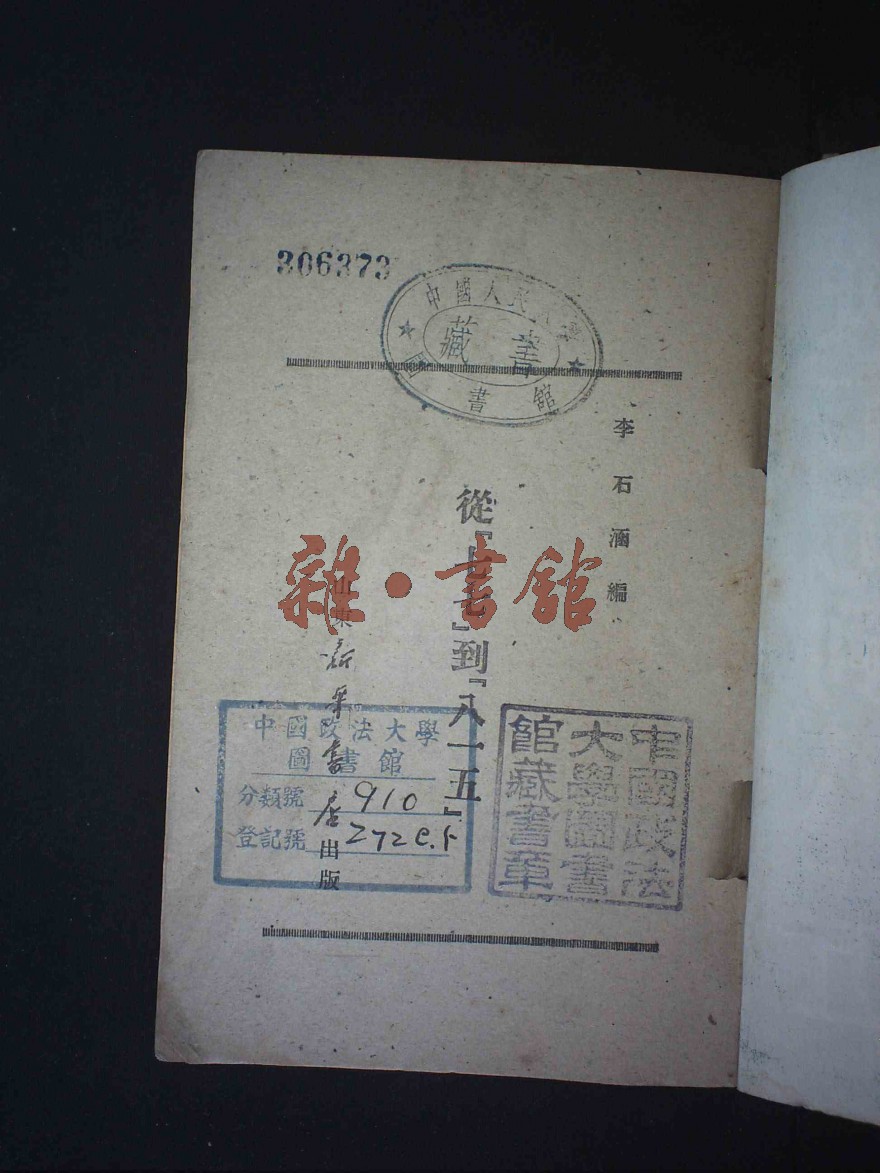 306373
中國人民大學
圖書館
藏書
李石涵編
從『七七』到『八一五』
山東新華書店出版
雜·書館
中國政法大學
圖書館
分類號 910
登記號 272 c.5
中國政法
大學圖書
館藏書章